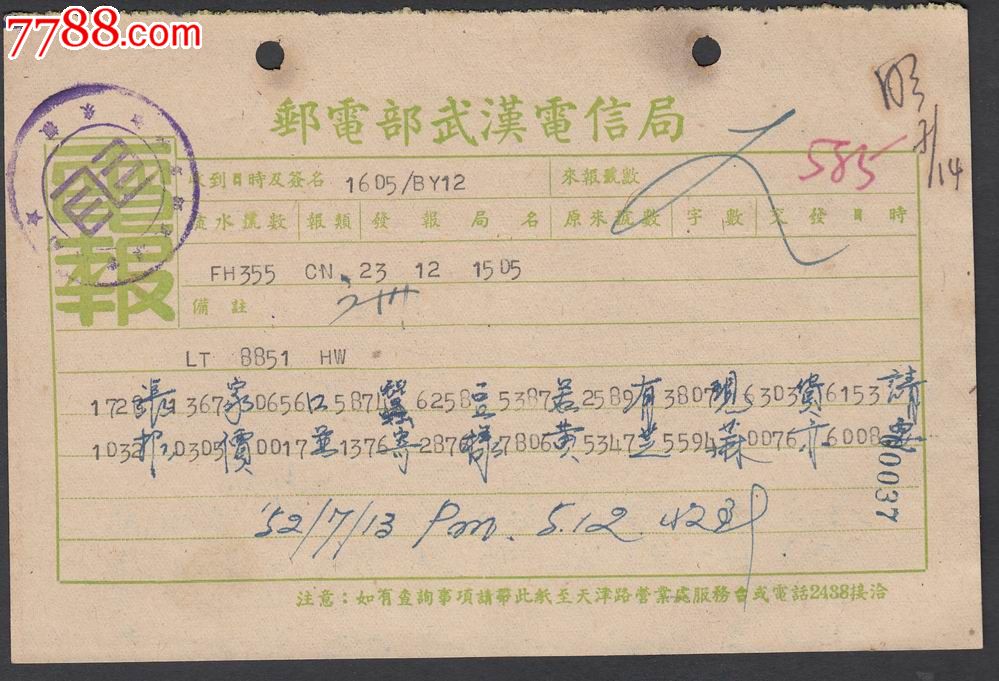 7788.com
郵電部武漢電信局
電報
收到日時及簽名 1605/BY12 來報號數 585
流水號數 報類 發報局名 原來號數 字數 交發日時
7/14
FH355 CN 23 12 1505
備註
LT 8851 HW
1728 張 367 家 0656 口 587 蠶 6258 豆 5387 若 2589 有 3807 現 6303 貨 6153 請
1032 報 0305 價 0017 並 1376 寄 2876 樣 7806 黃 5347 芝 5594 蔴 0076 亦 6008 要
00037
'52/7/13 Pm. 5.12
注意：如有查詢事項請帶此紙至天津路營業處服務台或電話2438接洽